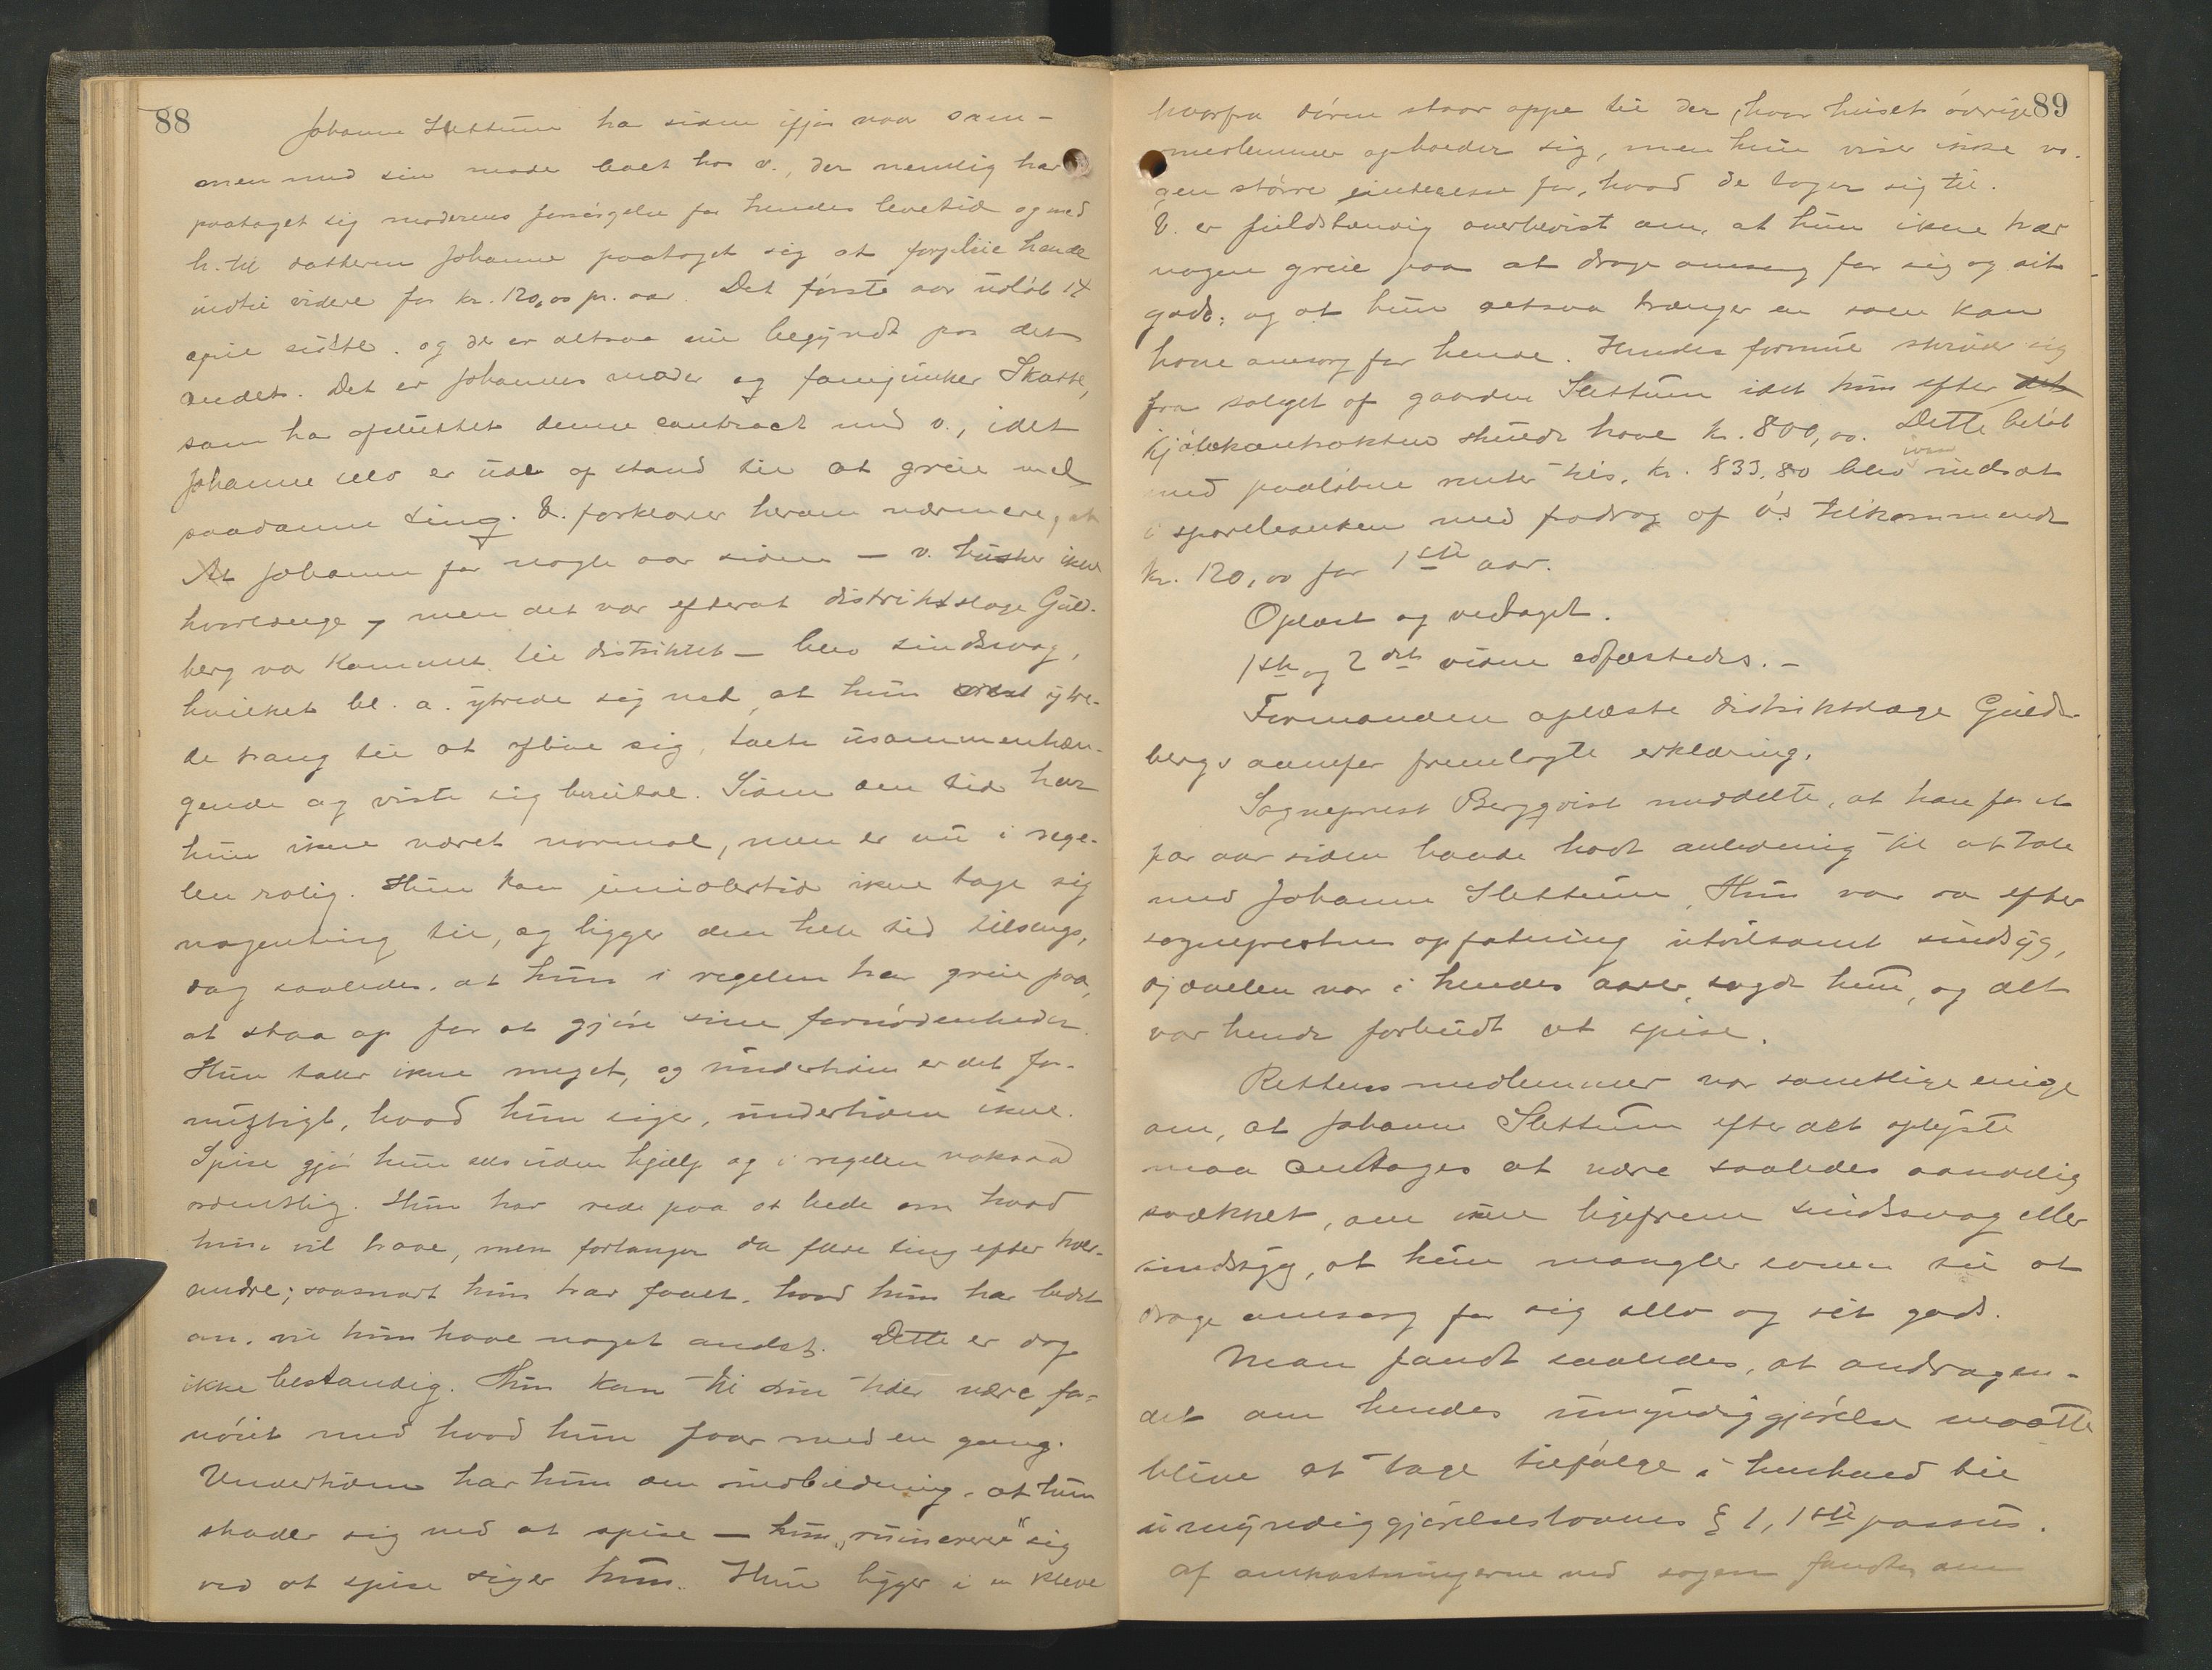 88
Johanne Slettum ha siden ifjor vaar sam-
men med sin moder boet hos v., der nemlig har
paataget sig moderens forsörgelse for hendes levetid og med
h. til datteren Johanne paataget sig at forpleie hende
indtil videre for kr. 120,00 pr. aar. Det förste aar udlöb 14
april sidstl. og der er altsaa nu begyndt paa det
andet. Det er Johannes moder og fanejunker Skatte,
som ha afsluttet denne contract med v., idet
Johanne selv er ude af stand til at greie med
saadanne ting. V. forklarer herom nærmere, at
At Johanne for nogle aar siden — v. husker ikke
hvorlænge, men det var efterat distriktslæge Guld-
berg var kommet til distriktet — blev sindssvag,
hvilket bl. a. ytrede sig ved, at hun ytre-
de trang til at aflive sig, talte usammenhæn-
gende og viste sig brutal. Siden den tid har
hun ikke været normal, men er nu i rege-
len rolig. Hun kan imidlertid ikke tage sig
nogenting til, og ligger den hele tid tilsengs,
dog saaledes, at hun i regelen har greie paa,
at staa op for at gjöre sine fornödenheder.
Hun taler ikke meget, og undertiden er det for-
nuftigt, hvad hun siger, undertiden ikke.
Spise gjör hun selv uden hjælp og i regelen noksaa
ordentlig. Hun har rede paa at bede om hvad
hun vil have, men forlanger da flere ting efter hver-
andre; saasnart hun har faaet, hvad hun har bedt
om, vil hun have noget andet. Dette er dog
ikke bestandig. Hun kan til sine tider være for-
nöiet med hvad hun faar med en gang.
Undertiden har hun den indbildning, at hun
skader sig ved at spise — hun „ruinerer“ sig
ved at spise siger hun. Hun ligger i en kleve
89
hvorfra dören staar oppe til der, hvor huset övrige
medlemmer opholder sig, men hun viser ikke no-
gen större interesse for, hvad de tager sig til.
V. er fuldstændig overbevist om, at hun ikke har
nogen greie paa at drage omsorg for sig og sit
gods, og at hun altsaa trænger en som kan
have omsorg for hende. Hendes formue skriver sig
fra salget af gaarden Slettum idet hun efter det
kjöbekontrakten skulde have kr. 800,00. Dette belöb
med paalöbne renter tils. kr. 833,80 blev indsat
i sparebanken med fradrag af v's tilkommende
kr. 120,00 for 1ste aar.
Oplæst og vedtaget.
1ste og 2det vidne edfæstedes. —
Formanden oplæste distriktslæge Guld-
bergs ovenfor fremlagte erklæring.
Sogneprest Bergqvist meddelte, at han for et
par aar siden havde havt anledning til at tale
med Johanne Slettum. Hun var da efter
sogneprestens opfatning utvilsomt sindsyg,
djævelen var i hendes aarer, sagde hun, og det
var hende forbudt at spise.
Rettens medlemmer var samtlige enige
om, at Johanne Slettum efter det oplyste
maa antages at være saaledes aandelig
svækket, om ikke ligefrem sindssvag eller
sindssyg, at hun mangler evnen til at
drage omsorg for sig selv og sit gods.
Man fandt saaledes, at andragen-
det om hendes umyndiggjörelse maatte
blive at tage tilfölge i henhold til
umyndiggjörelseslovens § 1, 1ste passus.
af omkostningerne ved sagen fandtes